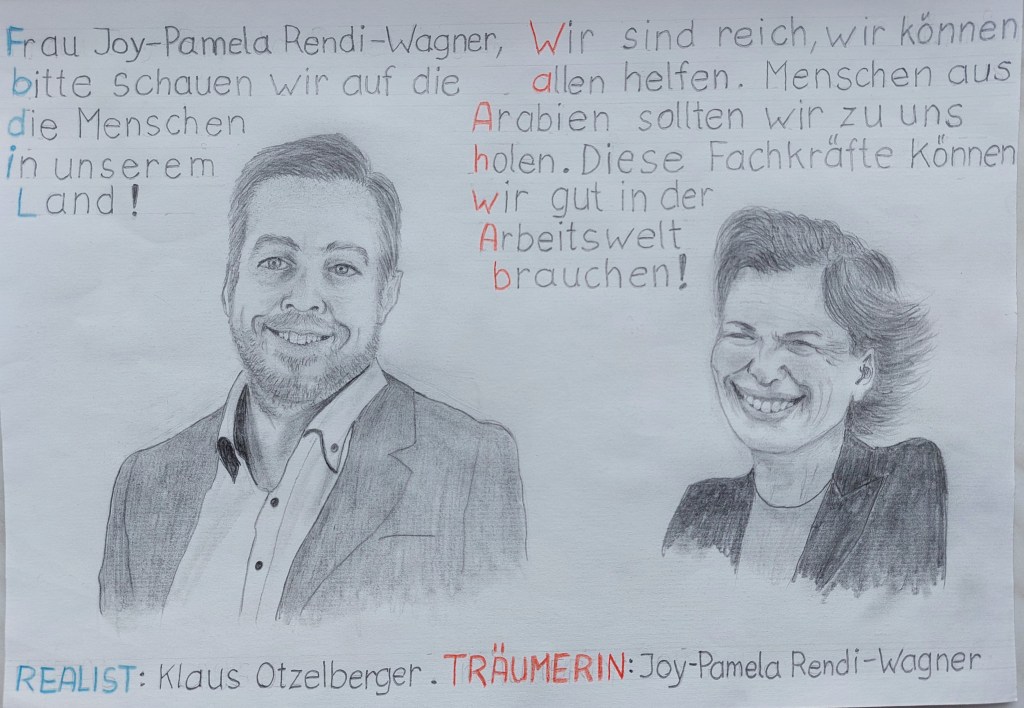 Frau Joy-Pamela Rendi-Wagner,
bitte schauen wir auf die
die Menschen
in unserem
Land!
Wir sind reich, wir können
allen helfen. Menschen aus
Arabien sollten wir zu uns
holen. Diese Fachkräfte können
wir gut in der
Arbeitswelt
brauchen!
REALIST: Klaus Otzelberger. TRÄUMERIN: Joy-Pamela Rendi-Wagner